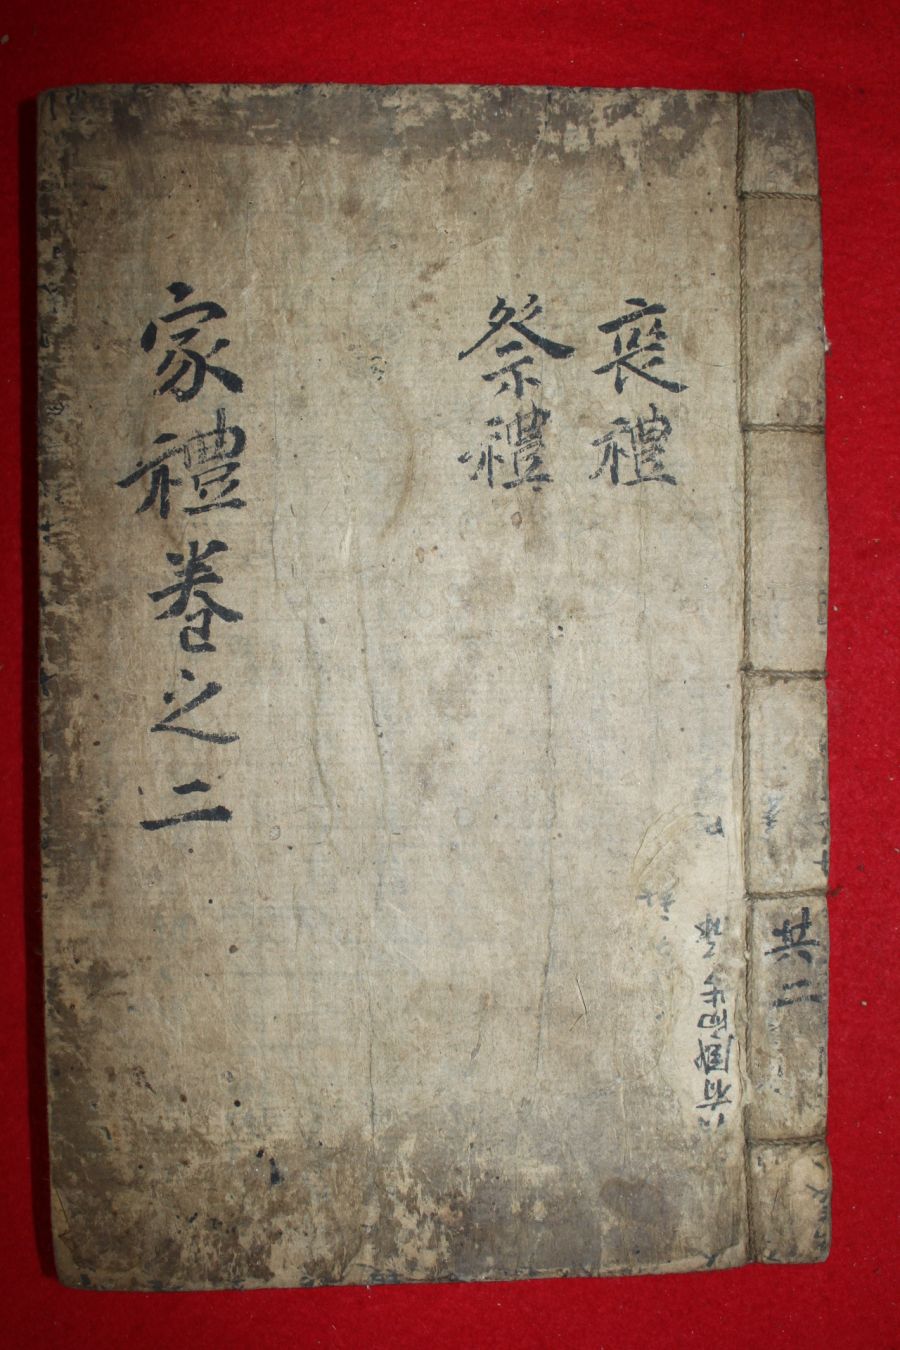 喪禮
祭禮
家禮卷之二
共二